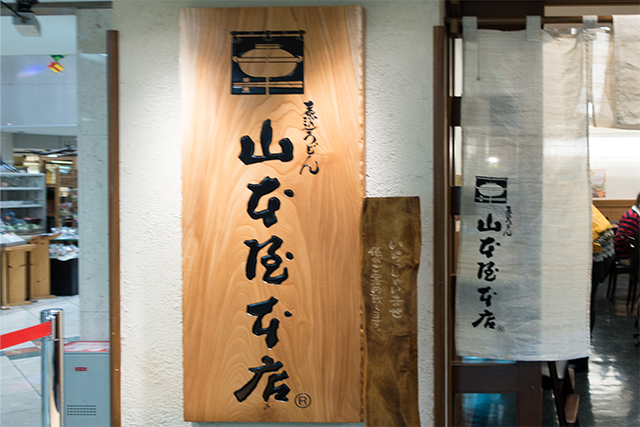 煮込うどん
山本屋本店
®
煮込うどん
山本屋本店
®